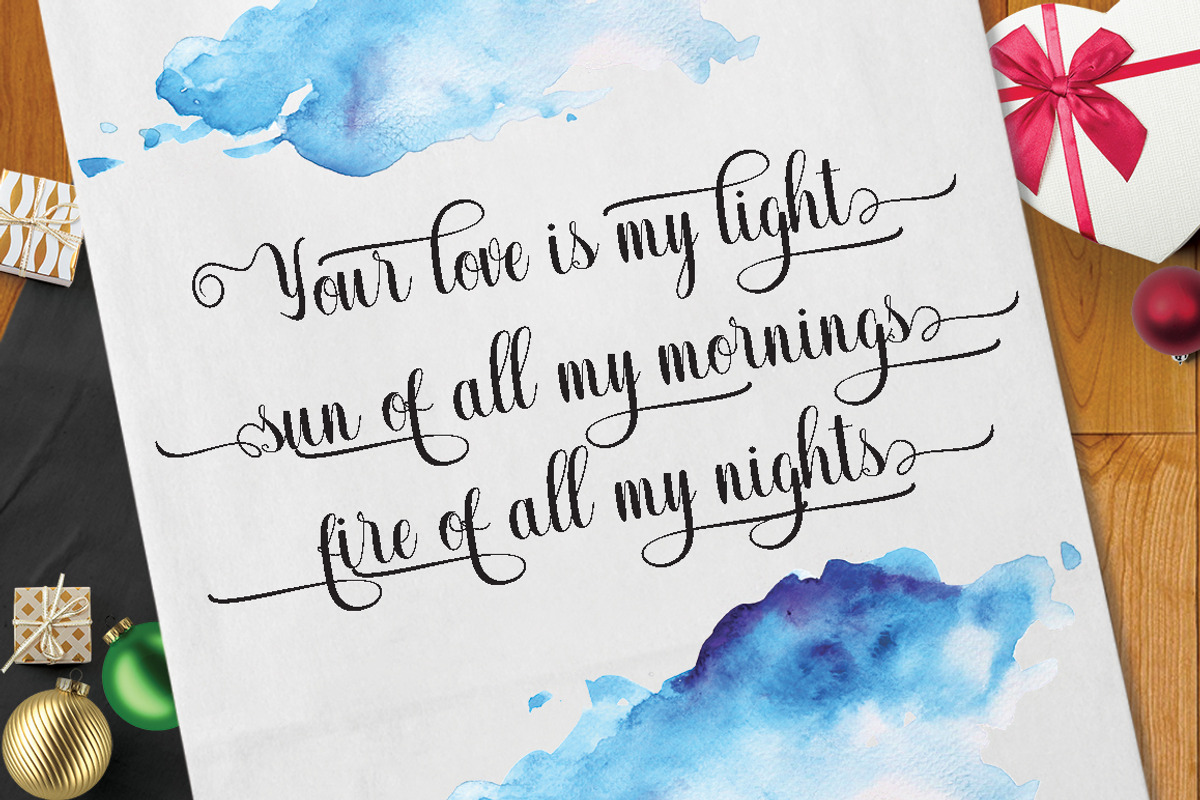 Your love is my light
sun of all my mornings
fire of all my nights